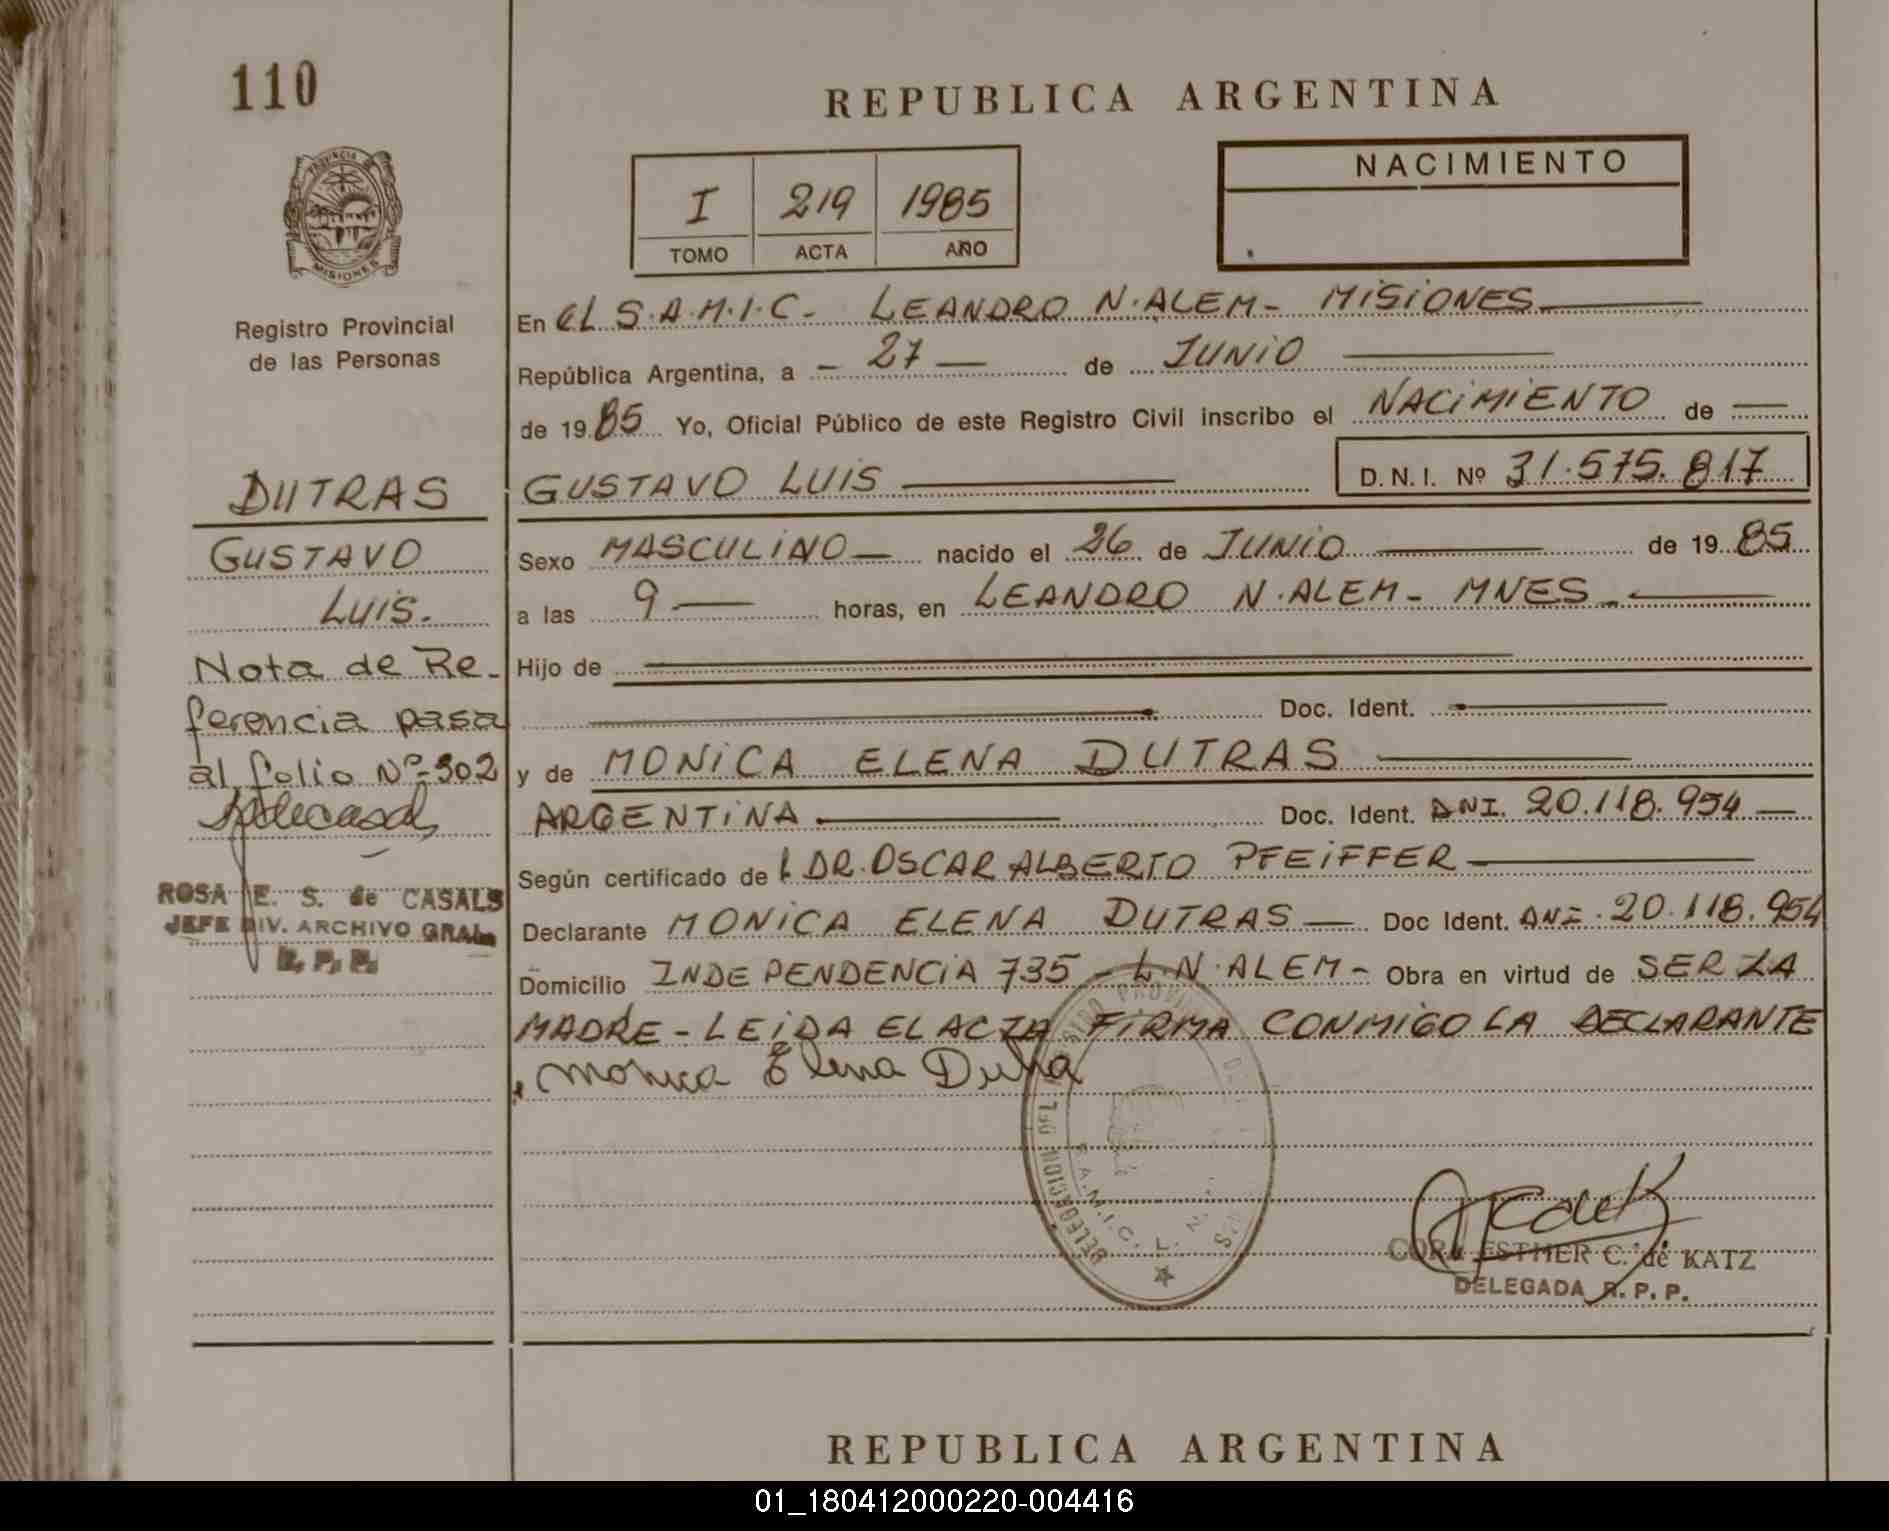 110
REPUBLICA ARGENTINA
I 219 1985
TOMO ACTA AÑO
NACIMIENTO
PROVINCIA DE
MISIONES
Registro Provincial
de las Personas
En EL S.A.M.I.C. - LEANDRO N. ALEM - MISIONES
República Argentina, a - 27 - de JUNIO
de 1985 Yo, Oficial Público de este Registro Civil inscribo el NACIMIENTO de
GUSTAVO LUIS D.N.I. Nº 31.575.817
Sexo MASCULINO nacido el 26 de JUNIO de 1985
a las 9 horas, en LEANDRO N. ALEM - MNES -
Hijo de
Doc. Ident.
y de MONICA ELENA DUTRAS
ARGENTINA Doc. Ident. DNI. 20.118.954
Según certificado de L DR. OSCAR ALBERTO PFEIFFER
Declarante MONICA ELENA DUTRAS Doc Ident. DNI. 20.118.954
Domicilio INDEPENDENCIA 735 - L.N. ALEM - Obra en virtud de SER LA
MADRE - LEIDA EL ACTA FIRMA CONMIGO LA DECLARANTE
Monica Elena Dutra
DUTRAS
GUSTAVO
LUIS.
Nota de Re-
ferencia pasa
al folio Nº 302
ROSA E. S. de CASALS
JEFE DIV. ARCHIVO GRAL.
R. P. P.
DELEGACION DEL
S.A.M.I.C. L. N.
CORA ESTHER C. de KATZ
DELEGADA R. P. P.
REPUBLICA ARGENTINA
01_180412000220-004416